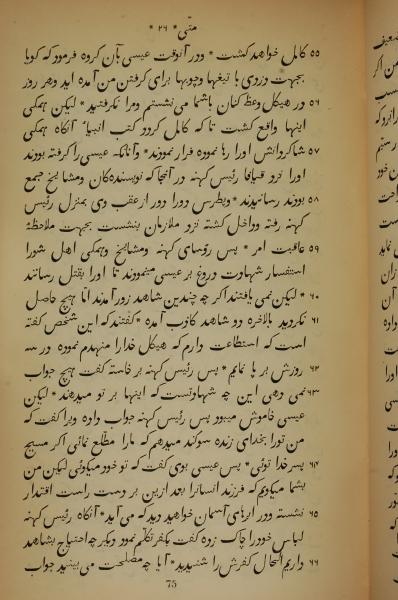 متی * ۲۶ *
۵۵ کامل خواهد کشت * ودر آنوقت عیسی بآن کروه فرمود که کویا
بجهت دزدی با تیغها وچوبها برای کرفتن من آمده اید وهر روز
۵۶ در هیکل وعظ کنان باشما می نشستم ومرا نکرفتید * لیکن همکی
اینها واقع کشت تا که کامل کردد کتب انبیا آنکاه همکی
۵۷ شاکردانش اورا رها نموده فرار نمودند * وآنانکه عیسی را کرفته بودند
اورا نزد قیافا رئیس کهنه در آنجا که نویسنده کان ومشایخ جمع
۵۸ بودند رسانیدند * وپطرس دورا دور از عقب وی بمنزل رئیس
کهنه رفته وداخل کشته نزد ملازمان بنشست بجهت ملاحظهٔ
۵۹ عاقبت امر * پس رؤسای کهنه ومشایخ وهمکی اهل شورا
استفسار شهادت دروغ بر عیسی مینمودند تا اورا بقتل رسانند
۶۰ * لیکن نمی یافتند اکر چه چندین شاهد زور آمدند امّا هیچ حاصل
۶۱ نکردید بالاخره دو شاهد کاذب آمده * کفتند که این شخص کفته
است که استطاعت دارم که هیکل خدارا منهدم نموده در سه
۶۲ روزش بر پا نمایم * پس رئیس کهنه بر خاسته کفت هیچ جواب
۶۳ نمی دهی این چه شهادتست که اینها بر تو میدهند * لیکن
عیسی خاموش میبود پس رئیس کهنه جواب داده ویرا کفت که
من تورا بخدای زنده سوکند میدهم که مارا مطّلع نمائی اکر مسیح
۶۴ پسر خدا توئی * پس عیسی بوی کفت که تو خود میکوئی لیکن من
بشما میکویم که فرزند انسانرا بعد ازین بر دست راست اقتدار
۶۵ نشسته ودر ابرهای آسمان خواهید دید که می آید * آنکاه رئیس کهنه
لباس خودرا چاک زده کفت بکفر تکلّم نمود دیکر چه احتیاج بشاهد
۶۶ داریم الحال کفرش را شنیدید * آیا چه مصلحت می بینید جواب
75